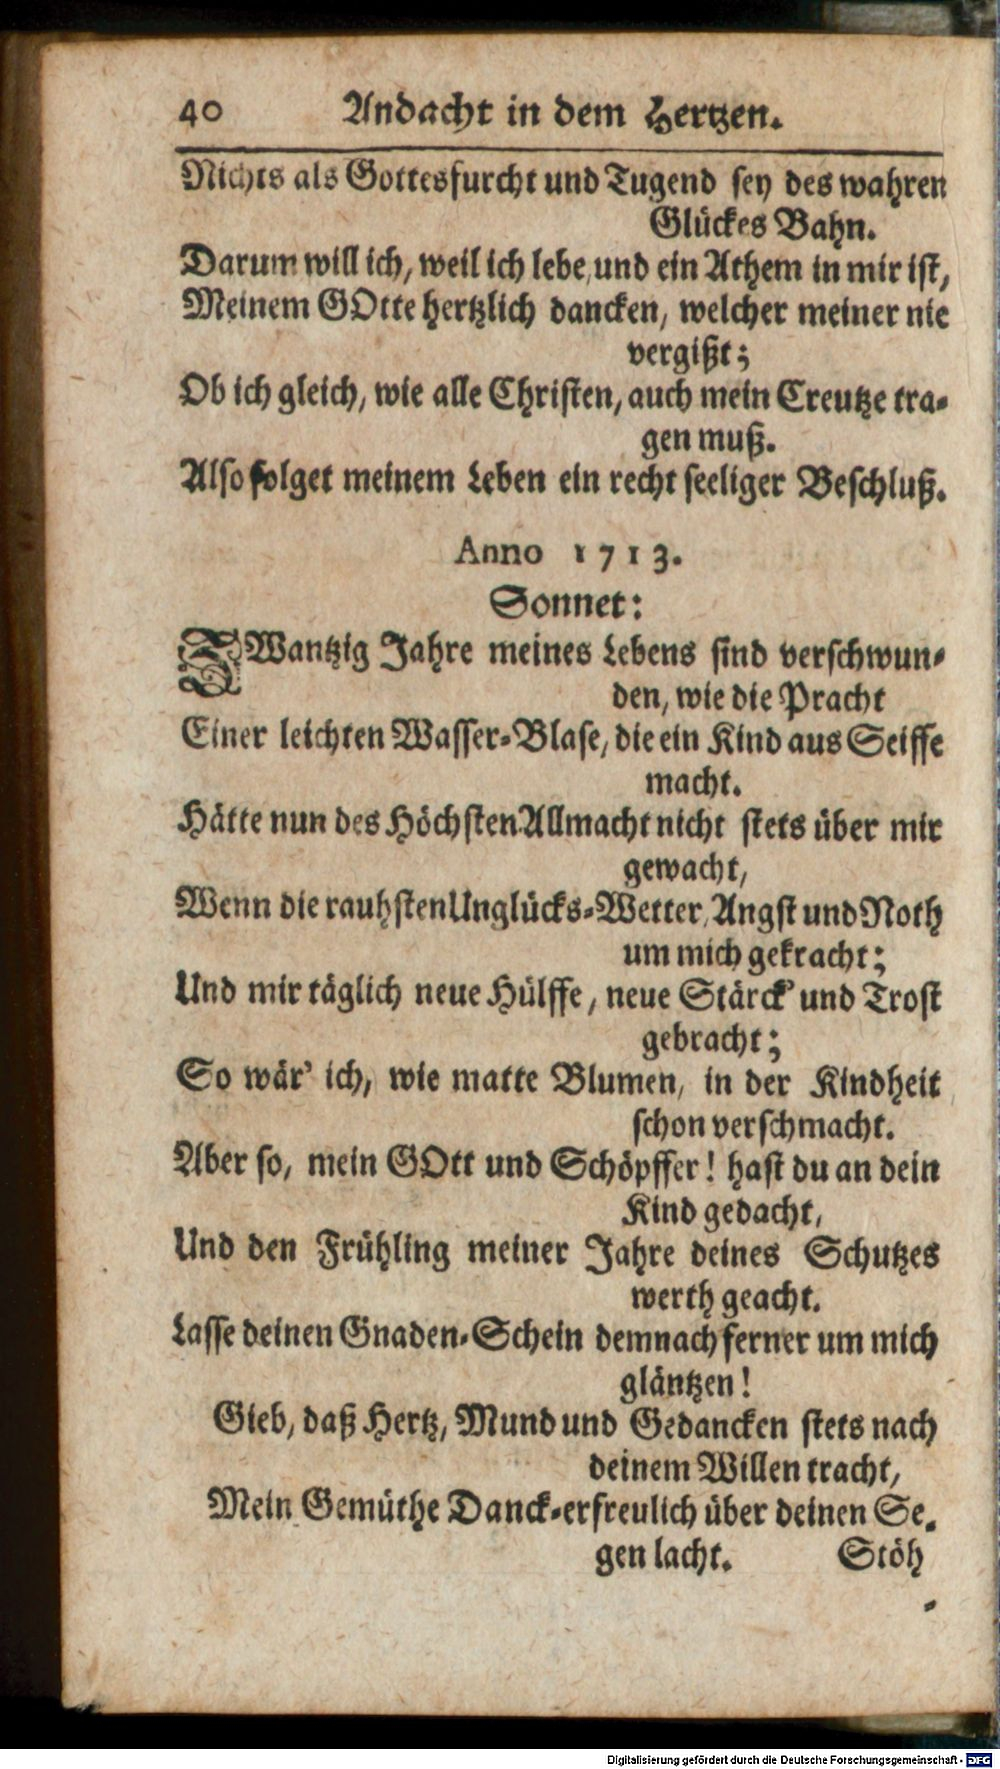 40 Andacht in dem Hertzen.
Nichts als Gottesfurcht und Tugend sey des wahren
Glückes Bahn.
Darum will ich, weil ich lebe, und ein Athem in mir ist,
Meinem GOtte hertzlich dancken, welcher meiner nie
vergißt;
Ob ich gleich, wie alle Christen, auch mein Creutze tra-
gen muß.
Also folget meinem Leben ein recht seeliger Beschluß.
Anno 1713.
Sonnet:
ZWantzig Jahre meines Lebens sind verschwun-
den, wie die Pracht
Einer leichten Wasser-Blase, die ein Kind aus Seiffe
macht.
Hätte nun des Höchsten Allmacht nicht stets über mir
gewacht,
Wenn die rauhsten Unglücks-Wetter, Angst und Noth
um mich gekracht;
Und mir täglich neue Hülffe, neue Stärck' und Trost
gebracht;
So wär' ich, wie matte Blumen, in der Kindheit
schon verschmacht.
Aber so, mein GOtt und Schöpffer! hast du an dein
Kind gedacht,
Und den Frühling meiner Jahre deines Schutzes
werth geacht.
Lasse deinen Gnaden-Schein demnach ferner um mich
gläntzen!
Gieb, daß Hertz, Mund und Gedancken stets nach
deinem Willen tracht,
Mein Gemüthe Danck-erfreulich über deinen Se-
gen lacht. Stöh-
Digitalisierung gefördert durch die Deutsche Forschungsgemeinschaft - DFG